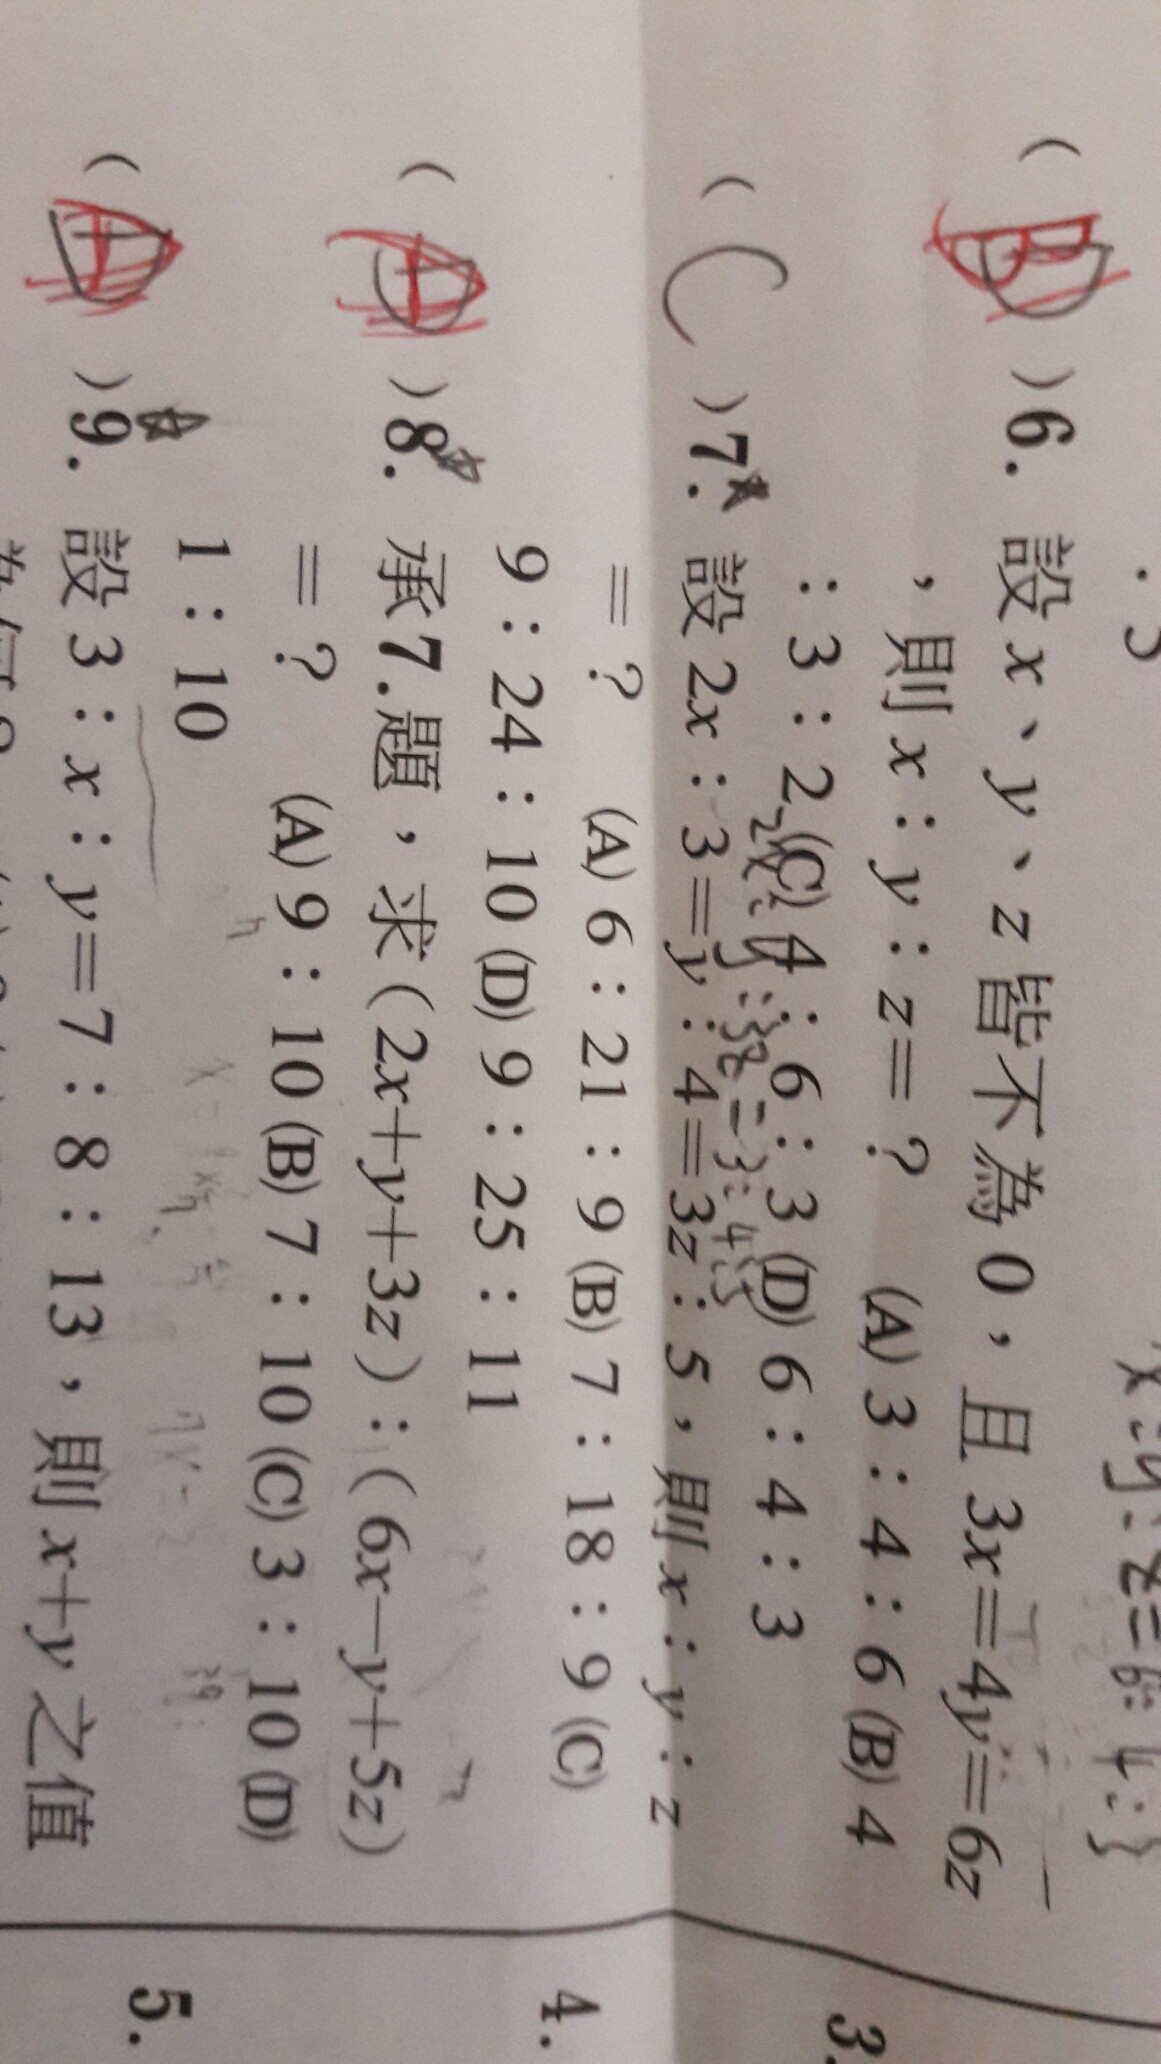 (D)6. 設 x、y、z 皆不為 0，且 3x=4y=6z
，則 x：y：z=？ (A) 3：4：6 (B) 4
：3：2 (C) 4：6：3 (D) 6：4：3
2x：y：3z=3：4：5
(C)7. 設 2x：3=y：4=3z：5，則 x：y：z
=？ (A) 6：21：9 (B) 7：18：9 (C)
9：24：10 (D) 9：25：11
(A)8. 承7.題，求(2x+y+3z)：(6x−y+5z)
=？ (A) 9：10 (B) 7：10 (C) 3：10 (D)
1：10
(A)9. 設 3：x：y=7：8：13，則 x+y 之值
3.
4.
5.